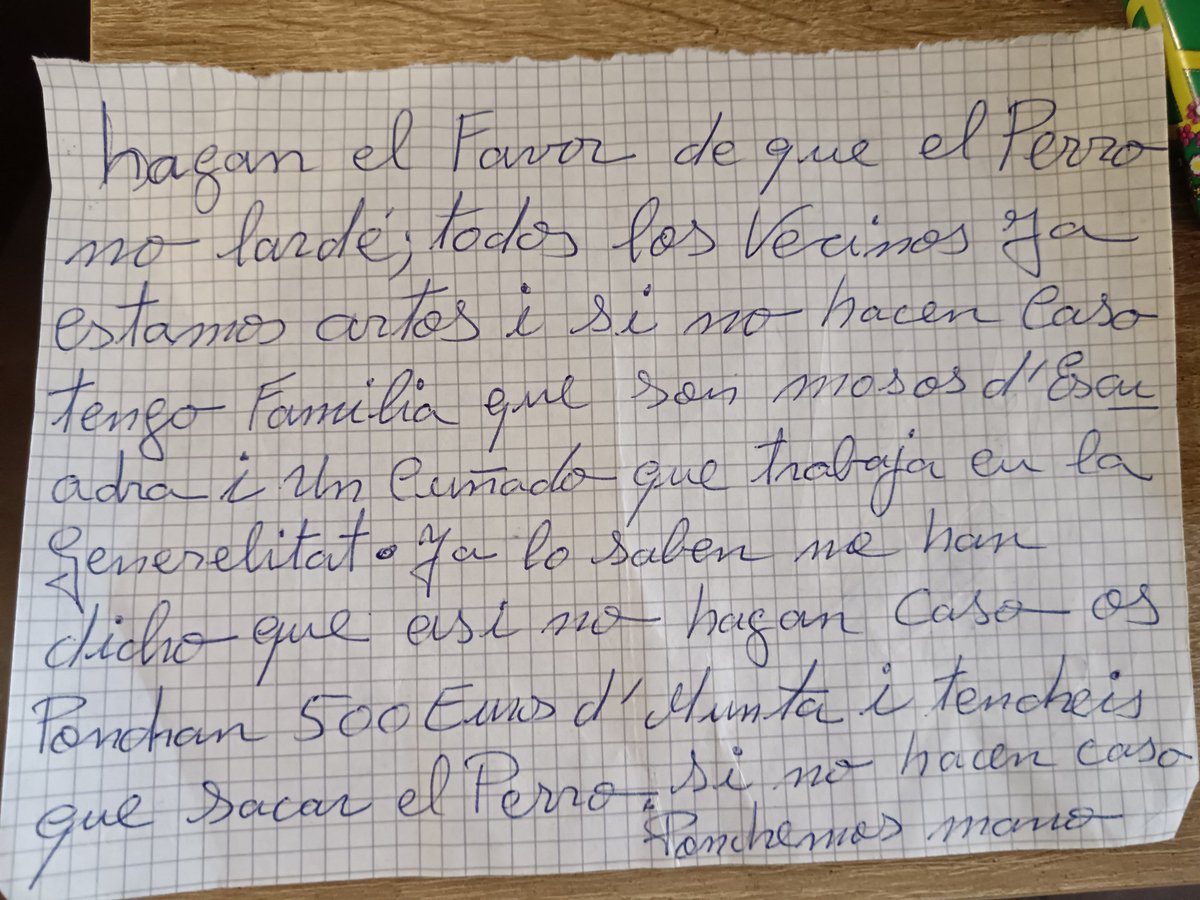 hagan el Favor de que el Perro
no lardé; todos los Vecinos Ya
estamos artos i si no hacen Caso
tengo Familia que son mosos d'Escu
adra i un Cuñado que trabaja en la
Generelitat. Ya lo saben me han
dicho que así no hagan Caso os
Pondran 500 Euros d'Munta i tendreis
que sacar el Perro. si no hacen caso
Pondremos mano